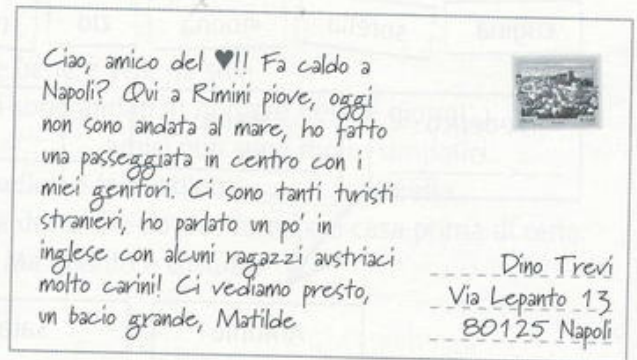 Ciao, amico del ♥!! Fa caldo a
Napoli? Qui a Rimini piove, oggi
non sono andata al mare, ho fatto
una passeggiata in centro con i
miei genitori. Ci sono tanti turisti
stranieri, ho parlato un po' in
inglese con alcuni ragazzi austriaci
molto carini! Ci vediamo presto,
un bacio grande, Matilde
Dino Trevi
Via Lepanto 13
80125 Napoli